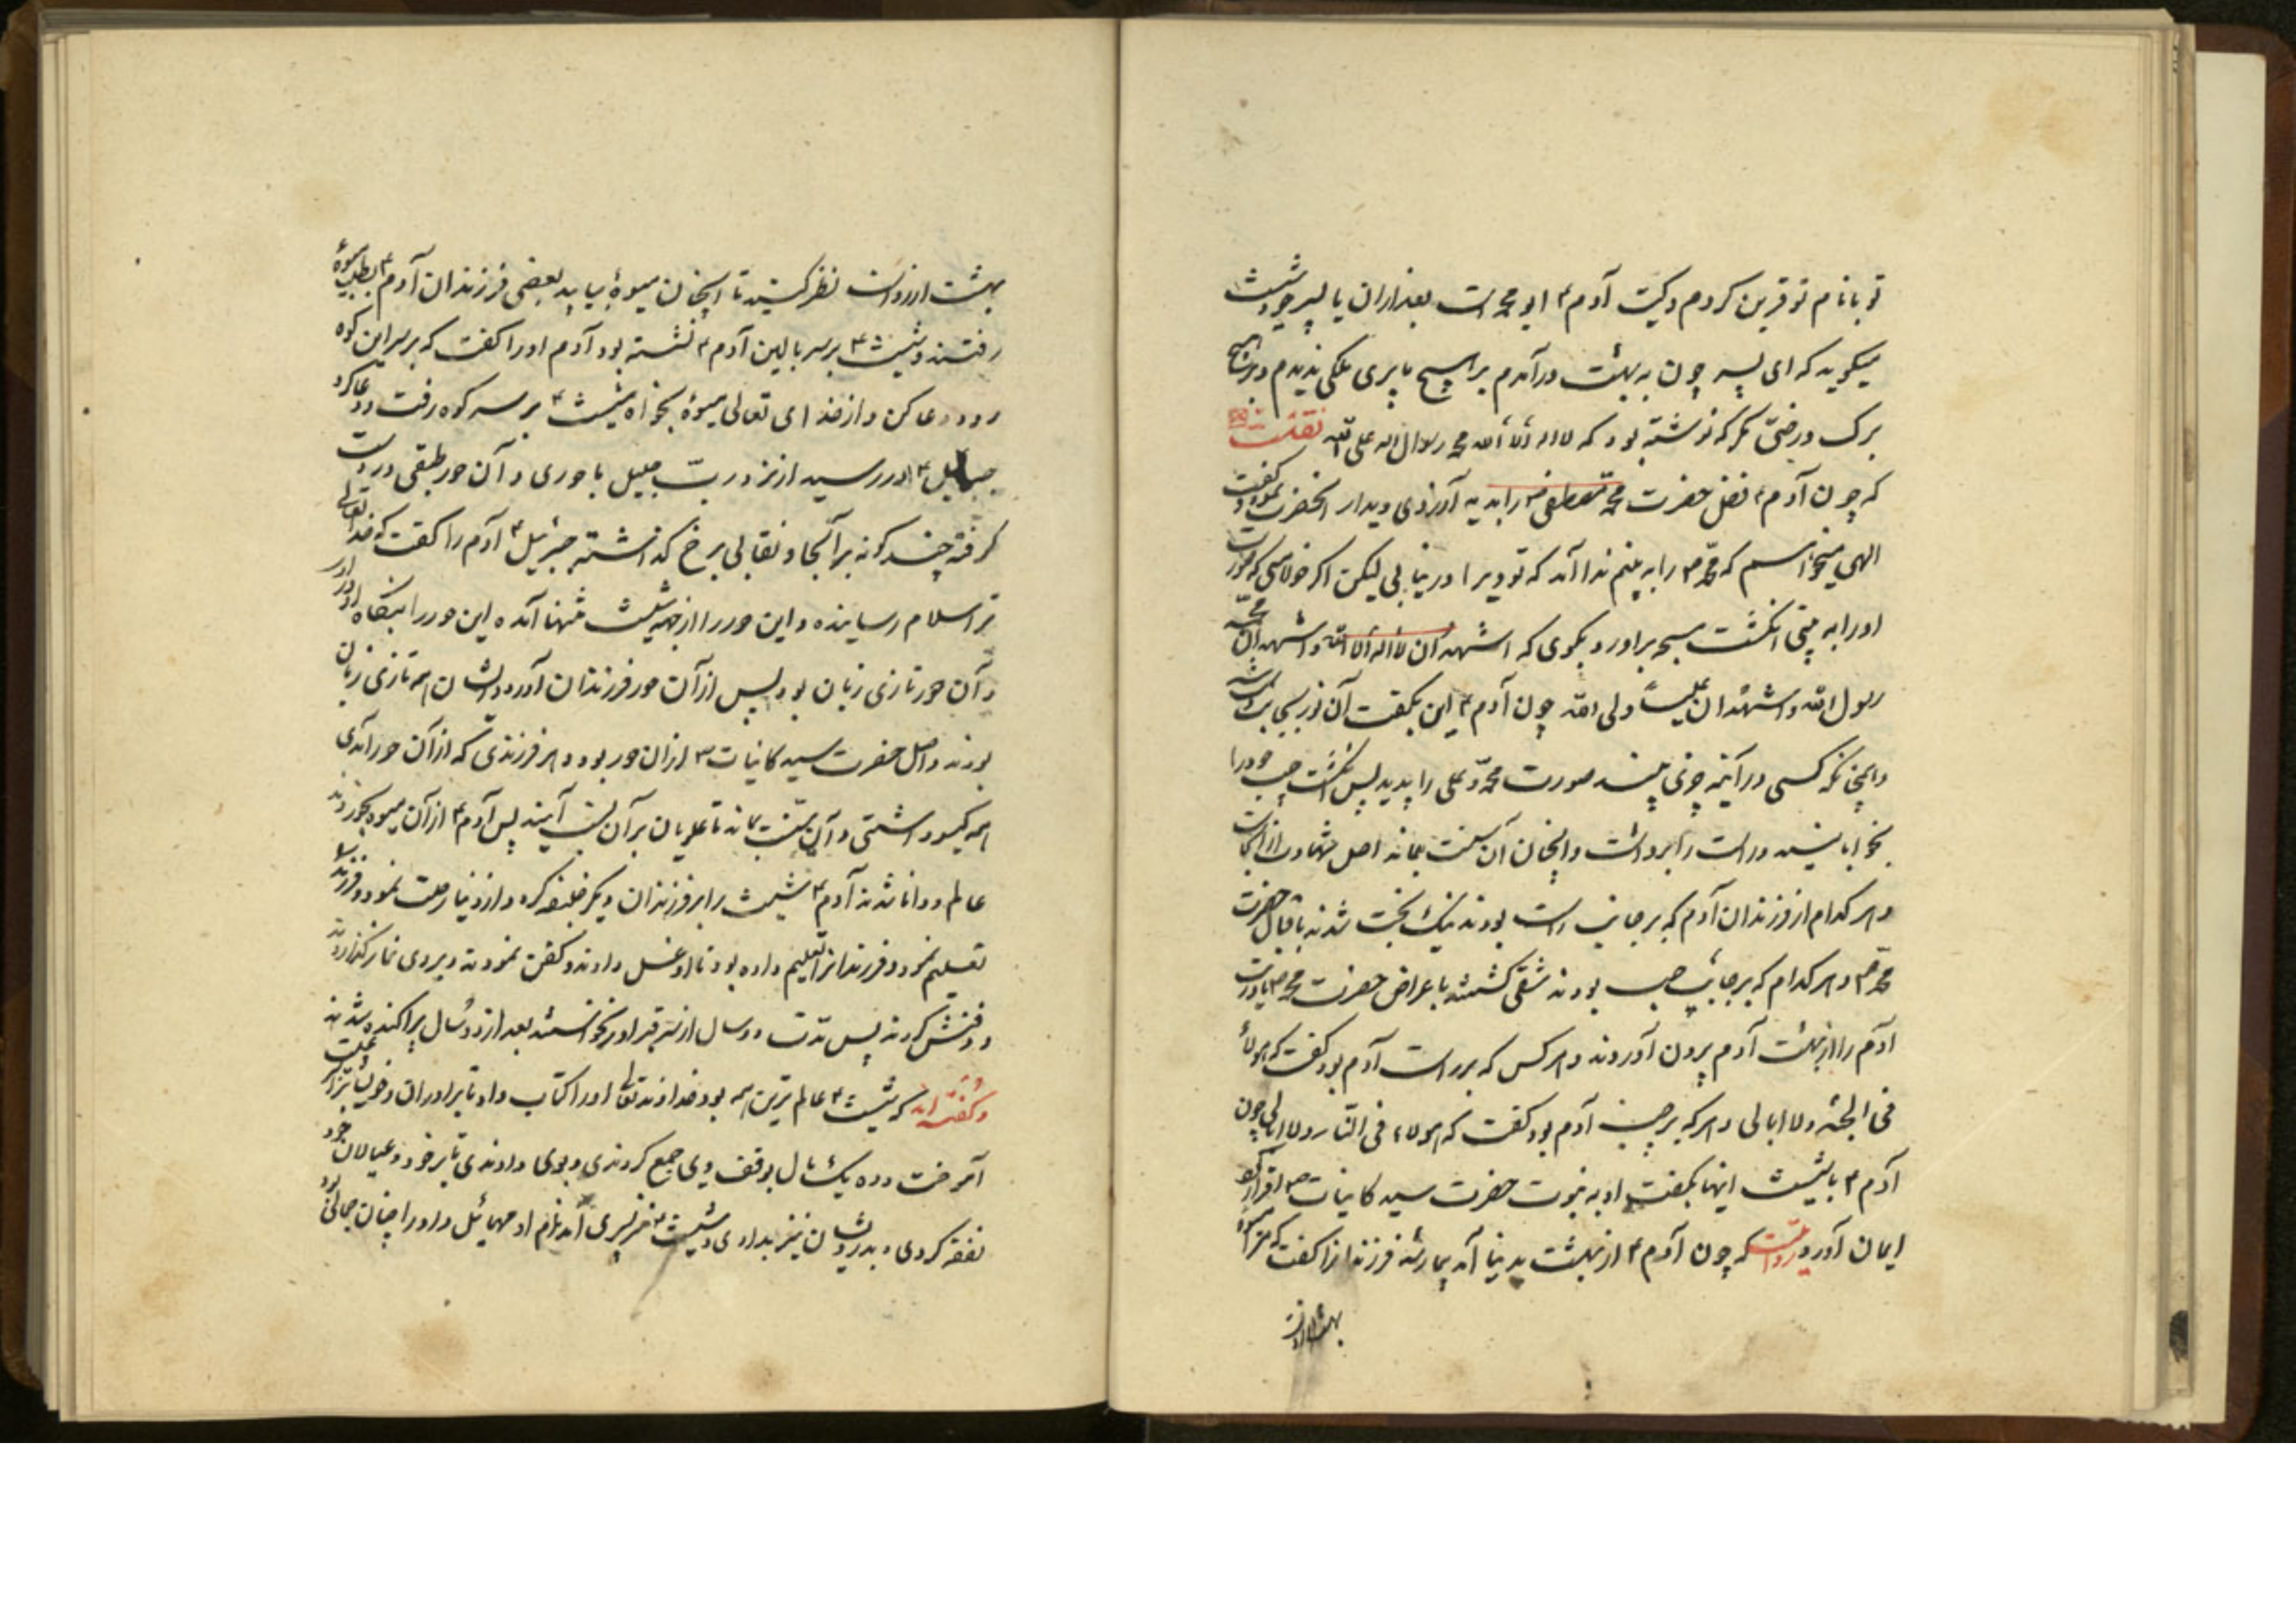 تو با نام تو قرین کردم و کنیت آدم ؑ ابو محمد است بعد از ان با پسر خود شیث
میگوید که ای پسر چون به بهشت در آمدم بر هیچ با پری ملکی ندیدم و بر هیچ
برک درختی مکر که نوشته بود که لا اله الا الله محمد رسول الله علی نقلست
که چون آدم ؑ فضل حضرت محمد مصطفی ص را بدید آرزوی دیدار انحضرت نمود و کفت
الهی میخواهم که محمد ص را به بینم ندا آمد که تو ویرا در نیابی لیکن اکر خواهی که صورت
او را به بینی انکشت مسبحه براور و بکوی که اشهد ان لا اله الا الله و اشهد ان محمد
رسول الله و اشهد ان علیا ولی الله چون آدم ؑ این بکفت آن نور
و همچنانکه کسی در آینه چیزی بیند صورت محمد و علی را بدید پس انکشت چپ خود را
بخوابانید و راست را برداشت و همچنان آن سنت بماند اصل شهادت از انجاست
و هر کدام از فرزندان آدم که بر جانب راست بودند نیک بخت شدند باقبال حضرت
محمد ص و هر کدام که بر جانب چپ بودند شقی کشتند با عراض حضرت محمد ص
آدم را از بهشت آدم بیرون آوردند و هر کس که بر راست آدم بود کفت که هولاء
فی الجنه و لا ابالی و هر که بر چپ آدم بود کفت که هولاء فی النار و لا ابالی چون
آدم ؑ با شیث اینها بکفت او به نبوت حضرت سید کاینات ص اقرار کرد
ایمان آورد روایتست که چون آدم ؑ از بهشت بدنیا آمد بیمار شد فرزندانرا کفت که مرا میوه
بهشت ارزوست
بهشت ارزوست نظر کنید تا اینچنان میوهٔ بیابید بعضی فرزندان آدم ؑ بطلب میوهٔ
رفتند و شیث ؑ بر سر بالین آدم ؑ نشسته بود آدم اورا کفت که بر سر این کوه
رو و دعا کن و از خدای تعالی میوهٔ بخواه شیث ؑ بر سر کوه رفت و دعا کرد
جبرائیل ؑ در رسید از نزد رب جلیل با حوری و آن حور طبقی در دست
کرفته چند کونه بر آنجا و نقابی بر رخ کذاشته جبرئیل ؑ آدم را کفت که خدایتعالی
ترا سلام رسانیده و این حور را از جهة شیث تنها آمده این حور را
و آن حور تازی زبان بود پس از آن حور فرزندان آورد و ایشان همه تازی زبان
بودند و اصل حضرت سید کاینات ص از ان حور بود و هر فرزندی که از آن حور آمدی
همه کیسو داشتی و آن سنت بماند تا علویان بر آن آیند پس آدم ؑ از آن میوه بخورد
عالم و دانا شدند آدم ؑ شیث را بر فرزندان دیکر خلیفه کرد و از دنیا رحلت نمود و فرزند
تسلیم نمود و فرزندانرا تعلیم داده بود تا او غسل دادند و کفن نمودند و بروی نماز کذاردند
و دفنش کردند پس مدت دو سال از سر قبر او برنخواستند بعد از دو سال پراکنده شدند
و کفته اند که شیث ؑ عالم ترین همه بود خداوند تعالی او را کتاب داد تا برادران و خویشانرا
آموخت و ده یک مال بوقف وی جمع کردندی و بوی دادندی تا بر خود و عیالان خود
نفقه کردی و بدرویشان نیز بدادی و شیث ؑ پسری آمد نام او مهیائیل و او را چنان جمالی بود